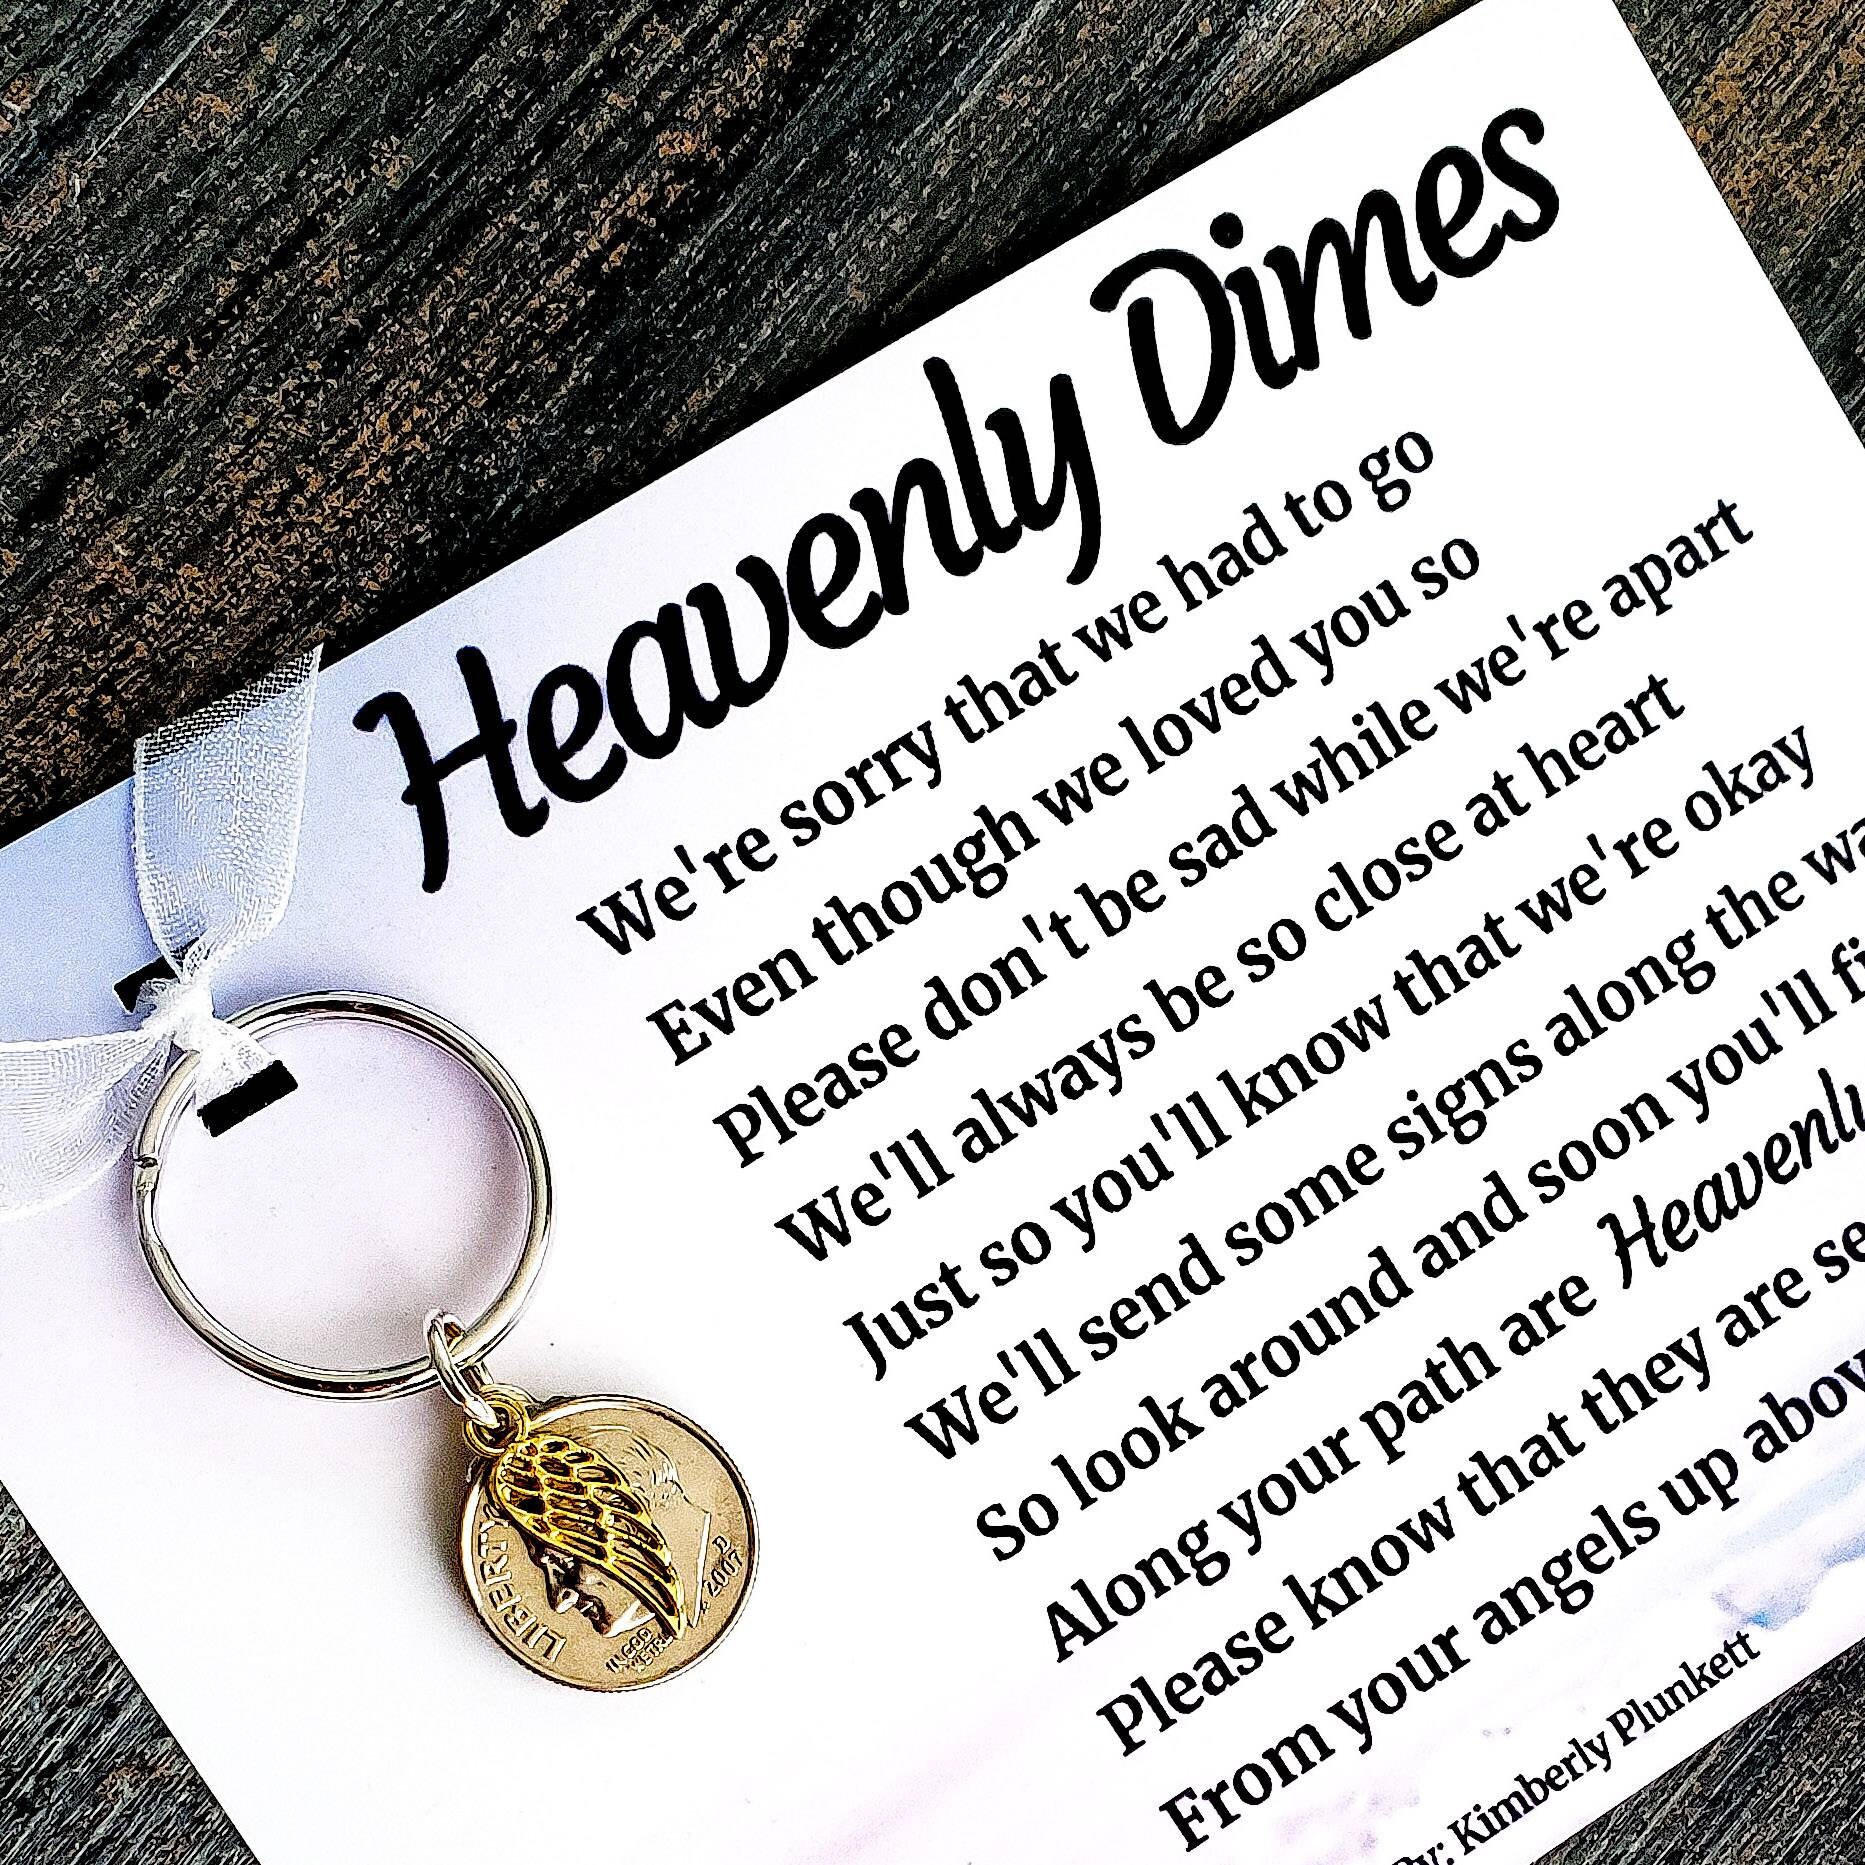 Heavenly Dimes
We're sorry that we had to go
Even though we loved you so
Please don't be sad while we're apart
We'll always be so close at heart
Just so you'll know that we're okay
We'll send some signs along the
So look around and soon you'll
Along your path are Heavenly
Please know that they are
From your angels up
By: Kimberly Plunkett
LIBERTY
IN GOD
WE TRUST
D
2007